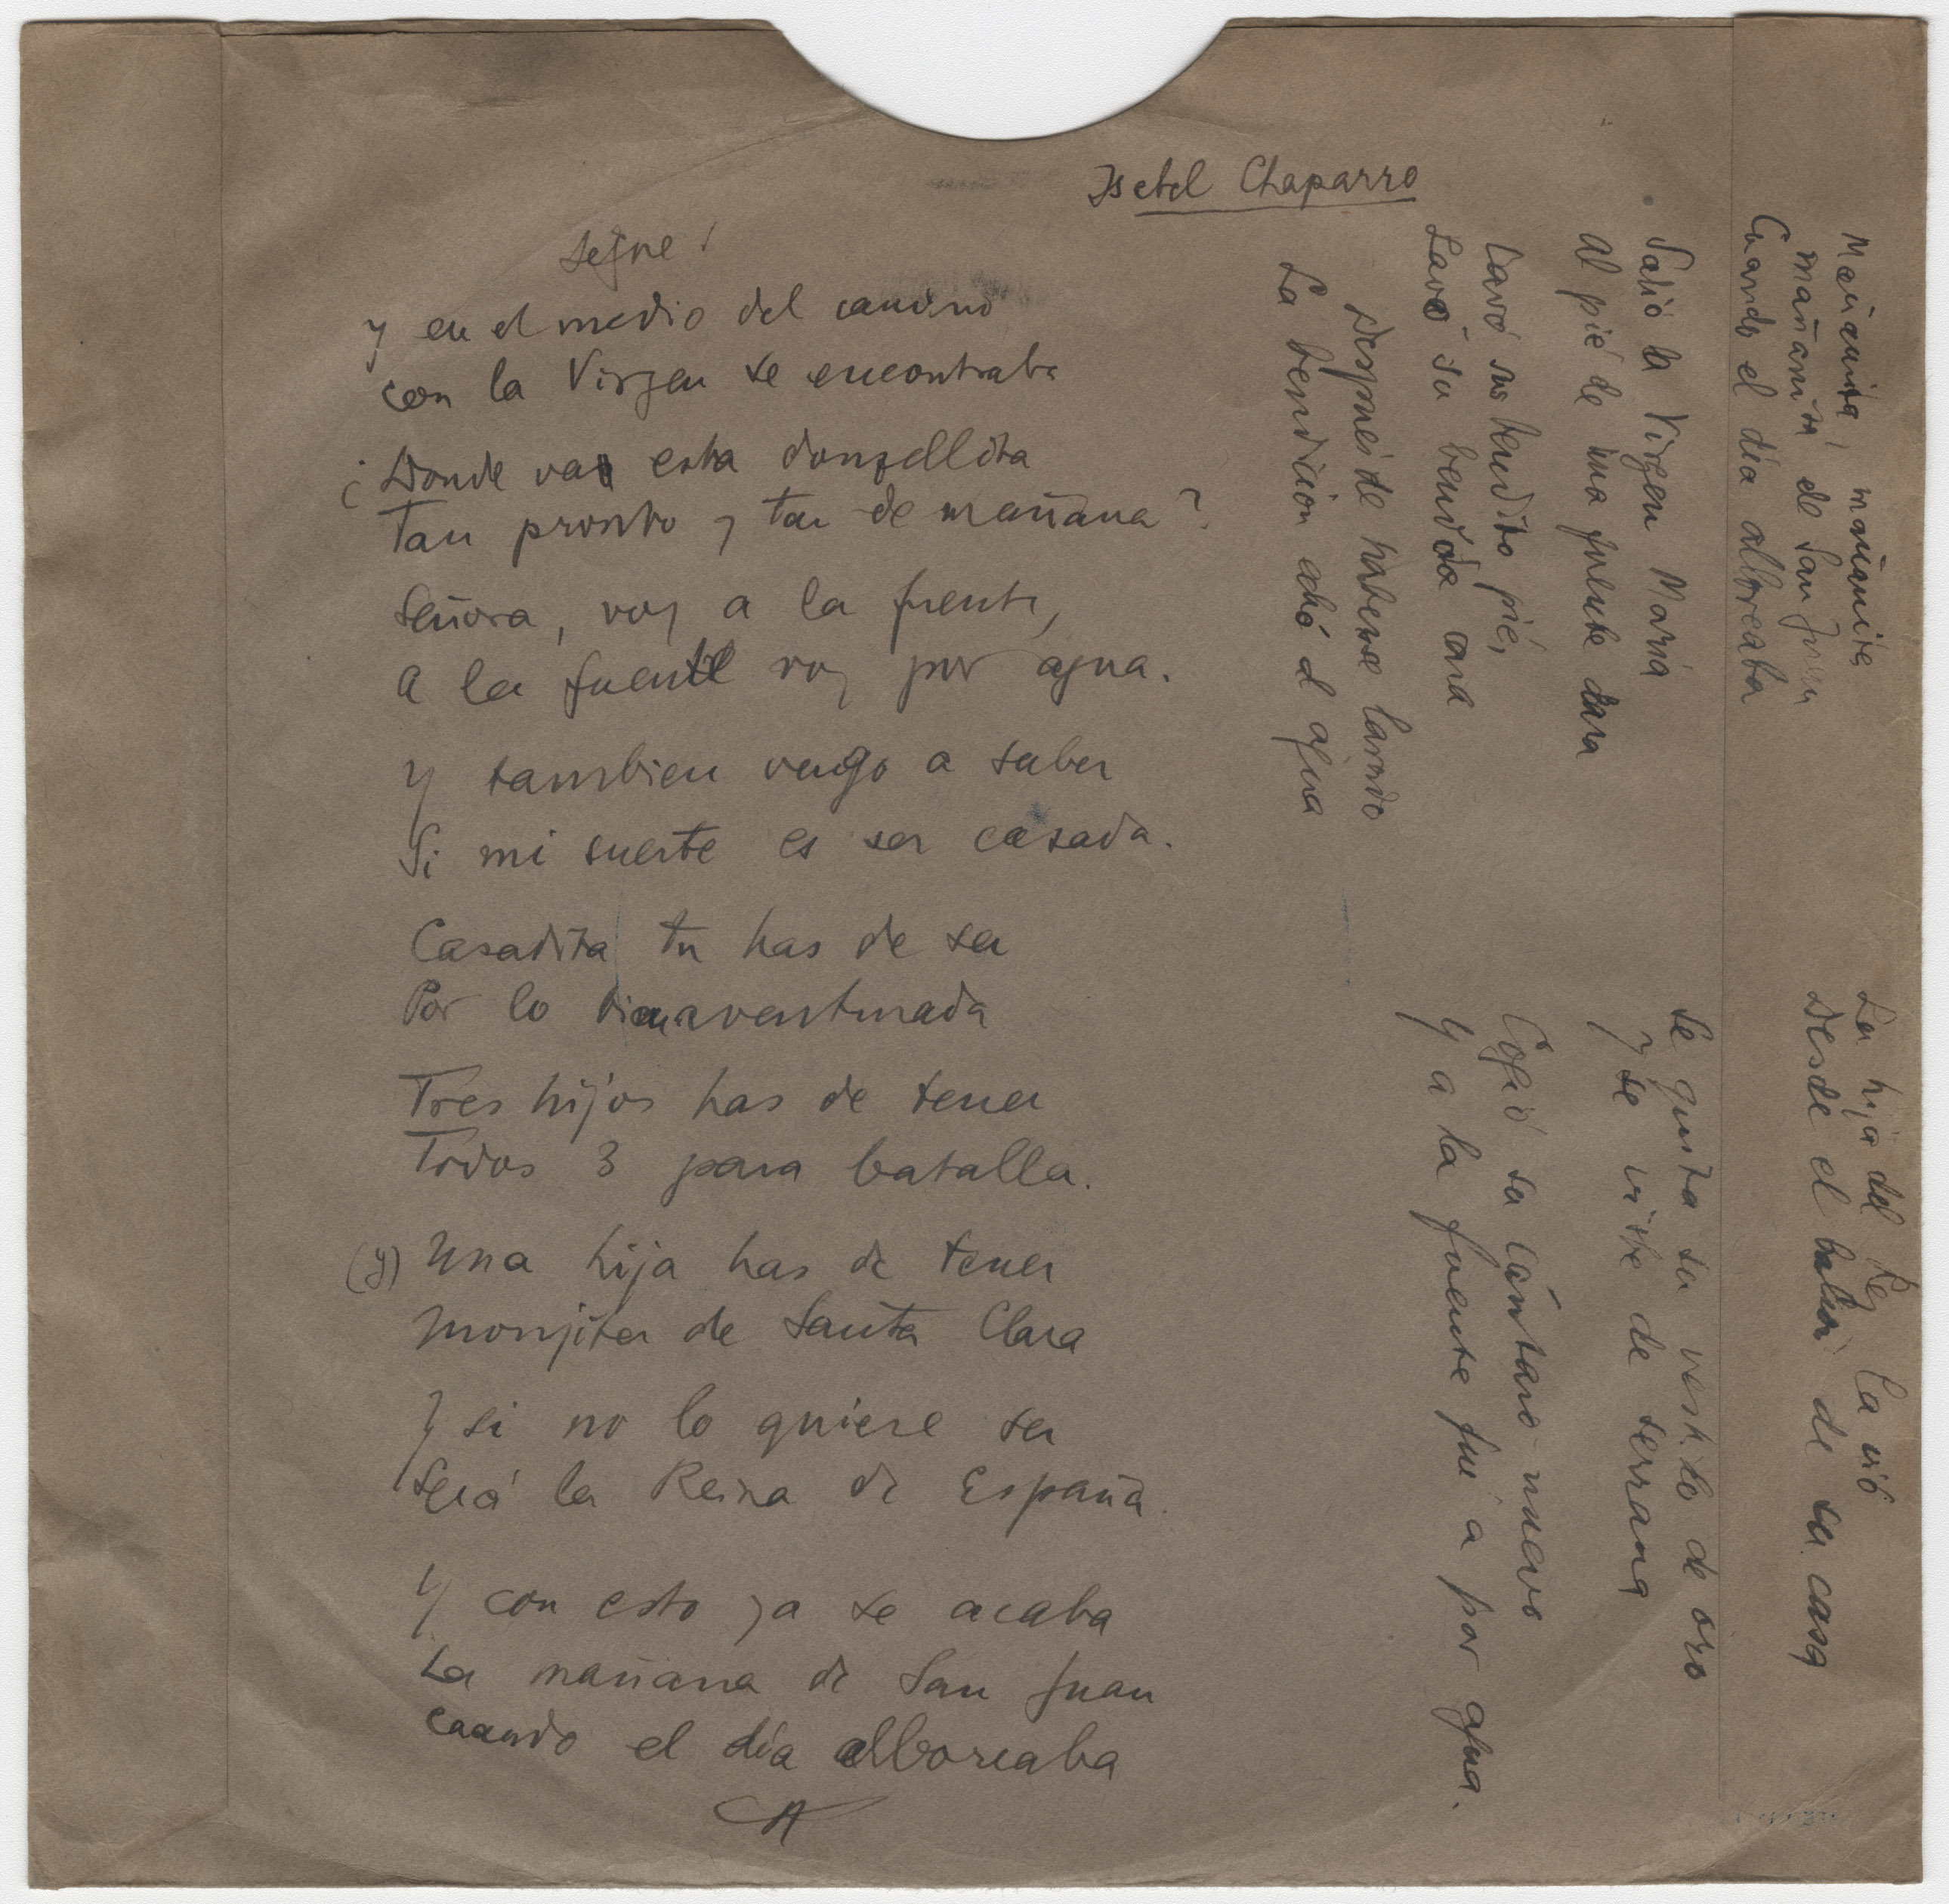 Isabel Chaparro
Mañanita, mañanita
mañanita de San Juan
Cuando el día alboreaba
Salió la Virgen María
al pie de una fuente clara
Lavó su bendito pié,
Lavó su bendita cara
Después de haberse lavado
La bendición echó al agua
La hija del Rey la vió
Desde el balcón de su casa
Se quita su vestido de oro
y se viste de serrana
Cogió su cántaro nuevo
Y a la fuente fué a por agua.
Sigue!
y en el medio del camino
con la Virgen se encontraba
¿Donde va esta donzellita
Tan pronto y tan de mañana?
Señora, voy a la fuente,
a la fuente voy por agua.
Y tambien vengo a saber
Si mi suerte es ser casada.
Casadita tu has de ser
Por lo bienaventurada
Tres hijos has de tener
Todos 3 para batalla.
(y) Una hija has de tener
Monjita de Santa Clara
Y si no lo quiere ser
Será la Reina de España.
Y con esto ya se acaba
La mañana de San Juan
cuando el día alboreaba